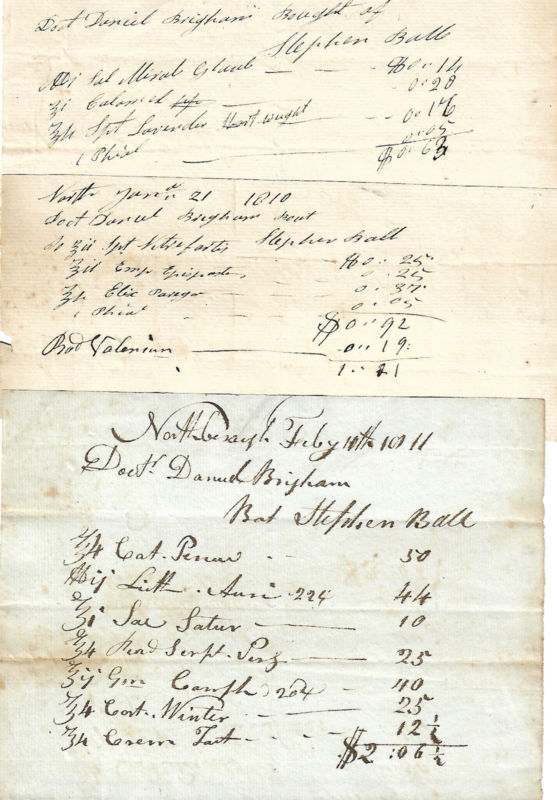 Doct Daniel Brigham Bought of
Stephen Ball
Sal Miral Glaub — — $0.. 14
ʒi Calomel — — 0.. 28
ʒ4 Spt Lavender — 0.. 16
1 Phial — 0.. 05
$0.. 63
North Janʸ 21 1810
Doct Daniel Brigham Bout
Stephen Ball
Spt Nitre fortis $0.. 25
Emp Epispastic 0.. 25
Elix Parego 0.. 37
1 Phial 0.. 05
$0.. 92
Rad Valerian — 0.. 19
1.. 11
Northborough Feby 11th 1811
Doctʳ Daniel Brigham
Bot Stephen Ball
℥4 Cort. Peruv — 50
℔ij Lith. Auri. 22¢ 44
℥i Sac Satur — 10
℥4 Rad Serpt. 25
℥ij Gm Camph 20¢ — 40
℥4 Cort. Winter — 25
℥4 Crem Tart — 12½
$2 :06½